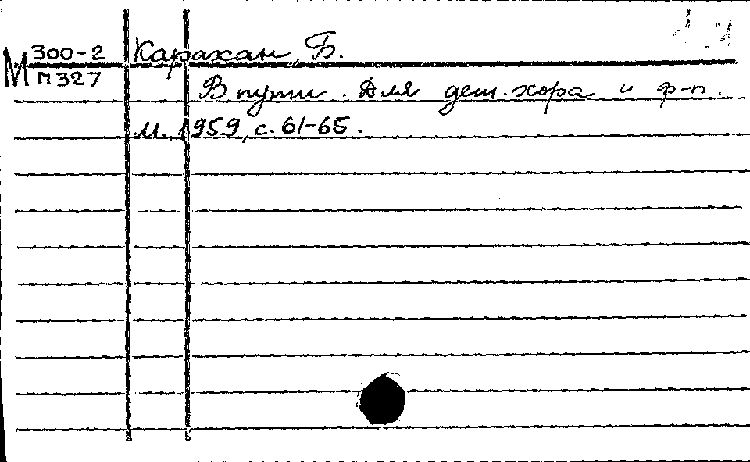 М 300-2 Карахан, Б.
П327
В пути. Для дет. хора и ф-п.
М., 1959, с. 61-65.